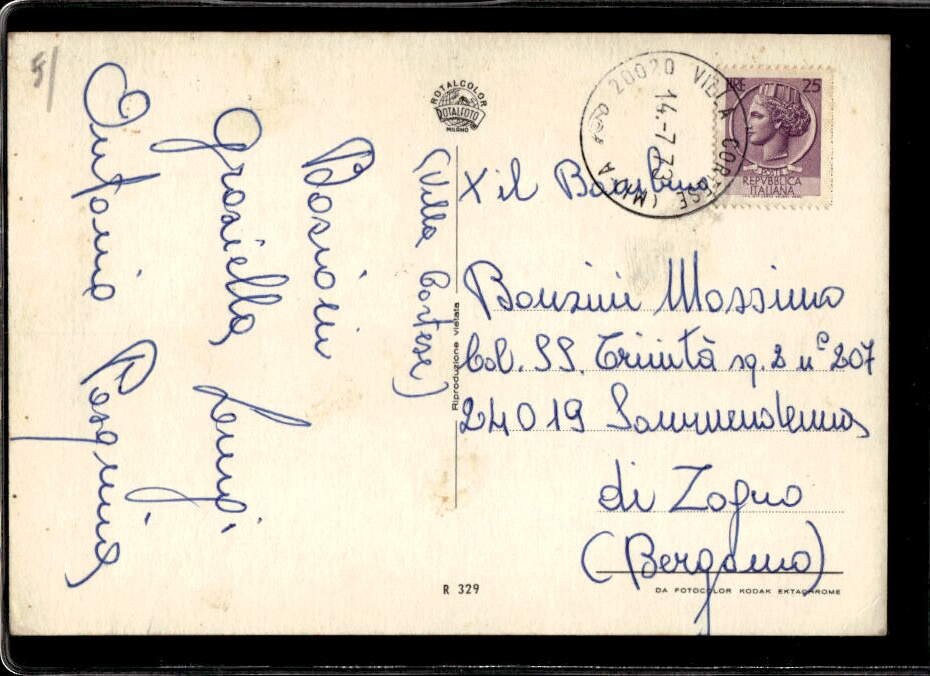 5/
Bosioni
Graziella Luigi
Antonio Rosanna
(Villa Cortese)
ROTALCOLOR
ROTALFOTO
MILANO
Riproduzione vietata
20020 VILLA CORTESE (MI)
14.-7.73
LIRE 25
POSTE
REPVBBLICA
ITALIANA
X il Bambino
Bonzini Massimo
Col. SS. Trinità sq. 2 n° 207
24019 Sammendenna
di Zogno
(Bergamo)
R 329
DA FOTOCOLOR KODAK EKTACHROME